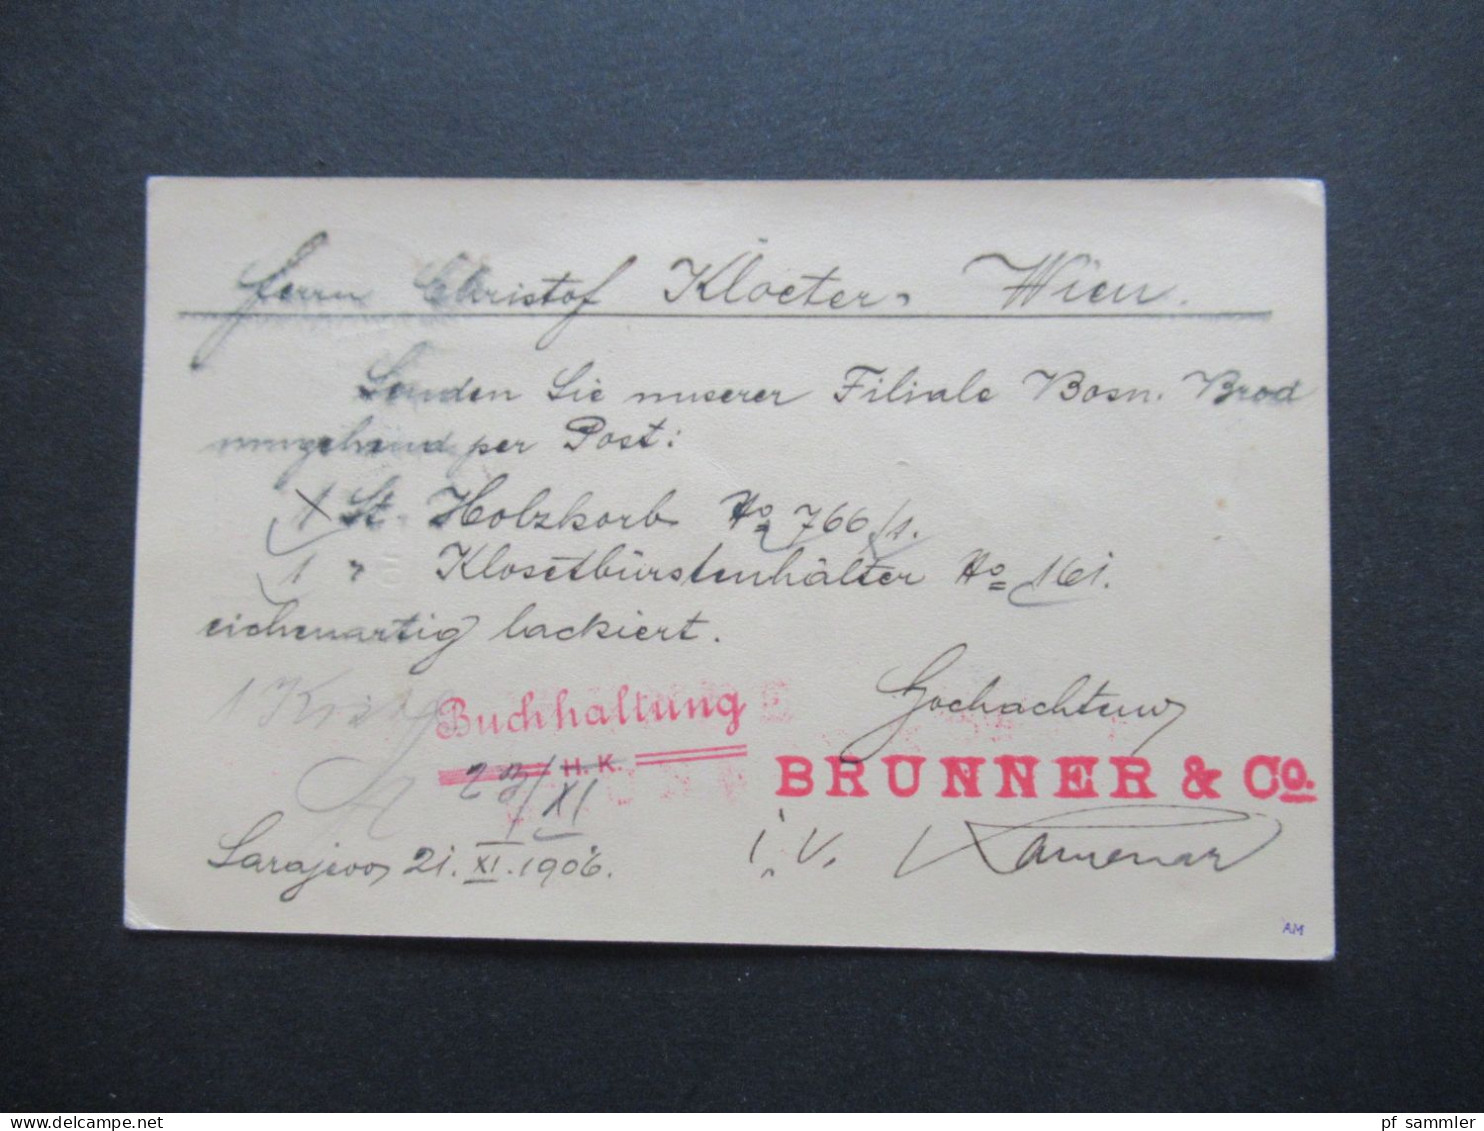 Herrn Christof Kloeter, Wien.
Senden Sie unserer Filiale Bosn. Brod
umgehend per Post:
1 St. Holzkorb No 766/1.
1 " Klosetbürstenhälter No 161.
eichenartig lackiert.
Hochachtend
Buchhaltung
H. K.
23/XI
BRUNNER & Co.
i. V.
Sarajevo, 21. XI. 1906.
AM
pf sammler
delcampe.net